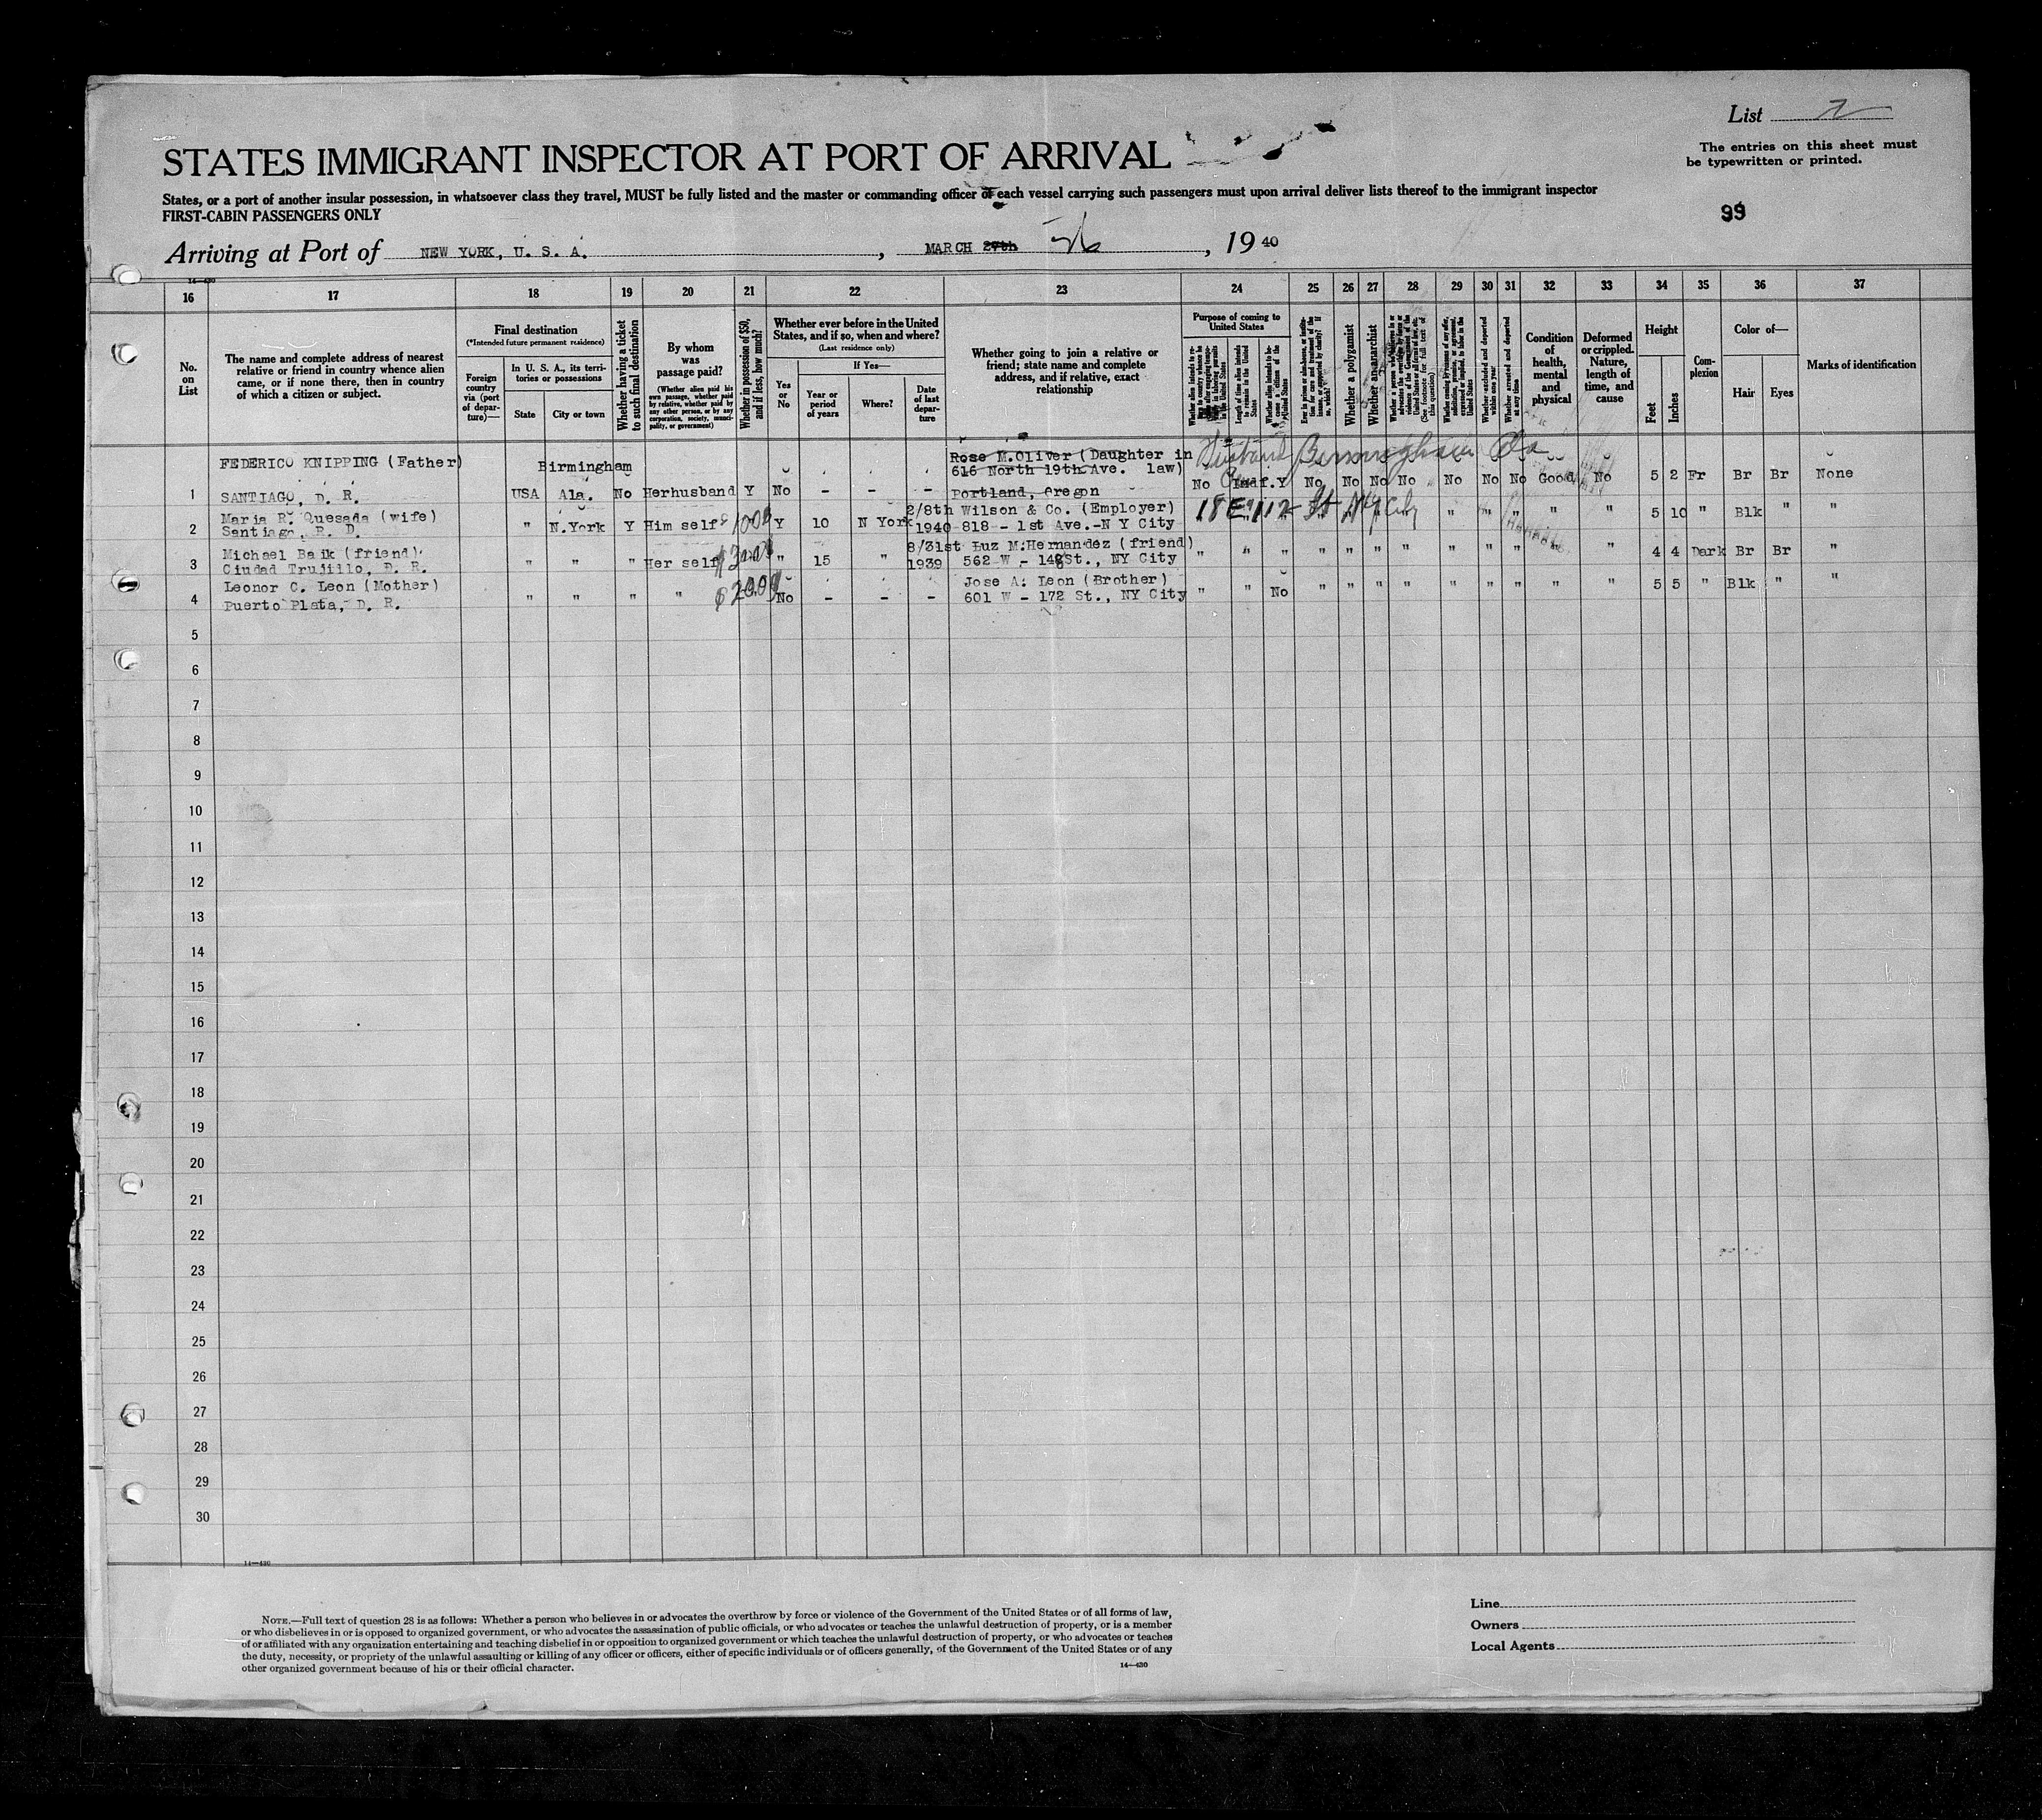 List 2
STATES IMMIGRANT INSPECTOR AT PORT OF ARRIVAL
The entries on this sheet must
be typewritten or printed.
States, or a port of another insular possession, in whatsoever class they travel, MUST be fully listed and the master or commanding officer of each vessel carrying such passengers must upon arrival deliver lists thereof to the immigrant inspector
FIRST-CABIN PASSENGERS ONLY
99
Arriving at Port of NEW YORK, U. S. A. , MARCH 27th 26 , 19 40
14—430
16 17 18 19 20 21 22 23 24 25 26 27 28 29 30 31 32 33 34 35 36 37
No. on List
The name and complete address of nearest
relative or friend in country whence alien
came, or if none there, then in country
of which a citizen or subject.
Final destination
(*Intended future permanent residence)
Foreign country via (port of departure)—
In U. S. A., its territories or possessions
State
City or town
Whether having a ticket to such final destination
By whom was passage paid?
(Whether alien paid his own passage, whether paid by relative, whether paid by any other person, or by any corporation, society, municipality, or government)
Whether in possession of $50, and if less, how much?
Whether ever before in the United States, and if so, when and where?
(Last residence only)
Yes or No
If Yes—
Year or period of years
Where?
Date of last departure
Whether going to join a relative or
friend; state name and complete
address, and if relative, exact
relationship
Purpose of coming to United States
Length of time alien intends to remain in the United States
Whether alien intends to become a citizen of the United States
Whether a polygamist
Whether an anarchist
Whether arrested and deported at any time
Condition of health, mental and physical
Deformed or crippled. Nature, length of time, and cause
Height
Feet
Inches
Complexion
Color of—
Hair
Eyes
Marks of identification
FEDERICO KNIPPING (Father) Birmingham Rose M.Oliver (Daughter in Husband Birmingham Ala
616 North 19th Ave. law)
1 SANTIAGO, D. R. USA Ala. No Herhusband Y No - - - Portland, Oregon No Indf. Y No No No No No No No Good No 5 2 Fr Br Br None
Maria R. Quesada (wife) 2/8th Wilson & Co. (Employer) 18 E 112 St NY City
2 Santiago, R. D. " N.York Y Him self $100 Y 10 N York 1940 818 - 1st Ave.-N Y City " " " " " " " 5 10 " Blk " "
Michael Baik (friend) 8/31st Luz M.Hernandez (friend)
3 Ciudad Trujillo, D. R. " " " Her self $300 " 15 " 1939 562 W - 148St., NY City " " " " " " " " " " " " 4 4 Dark Br Br "
Leonor C. Leon (Mother) Jose A. Leon (Brother)
4 Puerto Plata, D. R. " " " " $200 No - - - 601 W - 172 St., NY City " " No " " " " " " " " " 5 5 " Blk " "
5
6
7
8
9
10
11
12
13
14
15
16
17
18
19
20
21
22
23
24
25
26
27
28
29
30
14—430
NOTE.—Full text of question 28 is as follows: Whether a person who believes in or advocates the overthrow by force or violence of the Government of the United States or of all forms of law,
or who disbelieves in or is opposed to organized government, or who advocates the assassination of public officials, or who advocates or teaches the unlawful destruction of property, or is a member
of or affiliated with any organization entertaining and teaching disbelief in or opposition to organized government or which teaches the unlawful destruction of property, or who advocates or teaches
the duty, necessity, or propriety of the unlawful assaulting or killing of any officer or officers, either of specific individuals or of officers generally, of the Government of the United States or of any
other organized government because of his or their official character.
14—430
Line
Owners
Local Agents